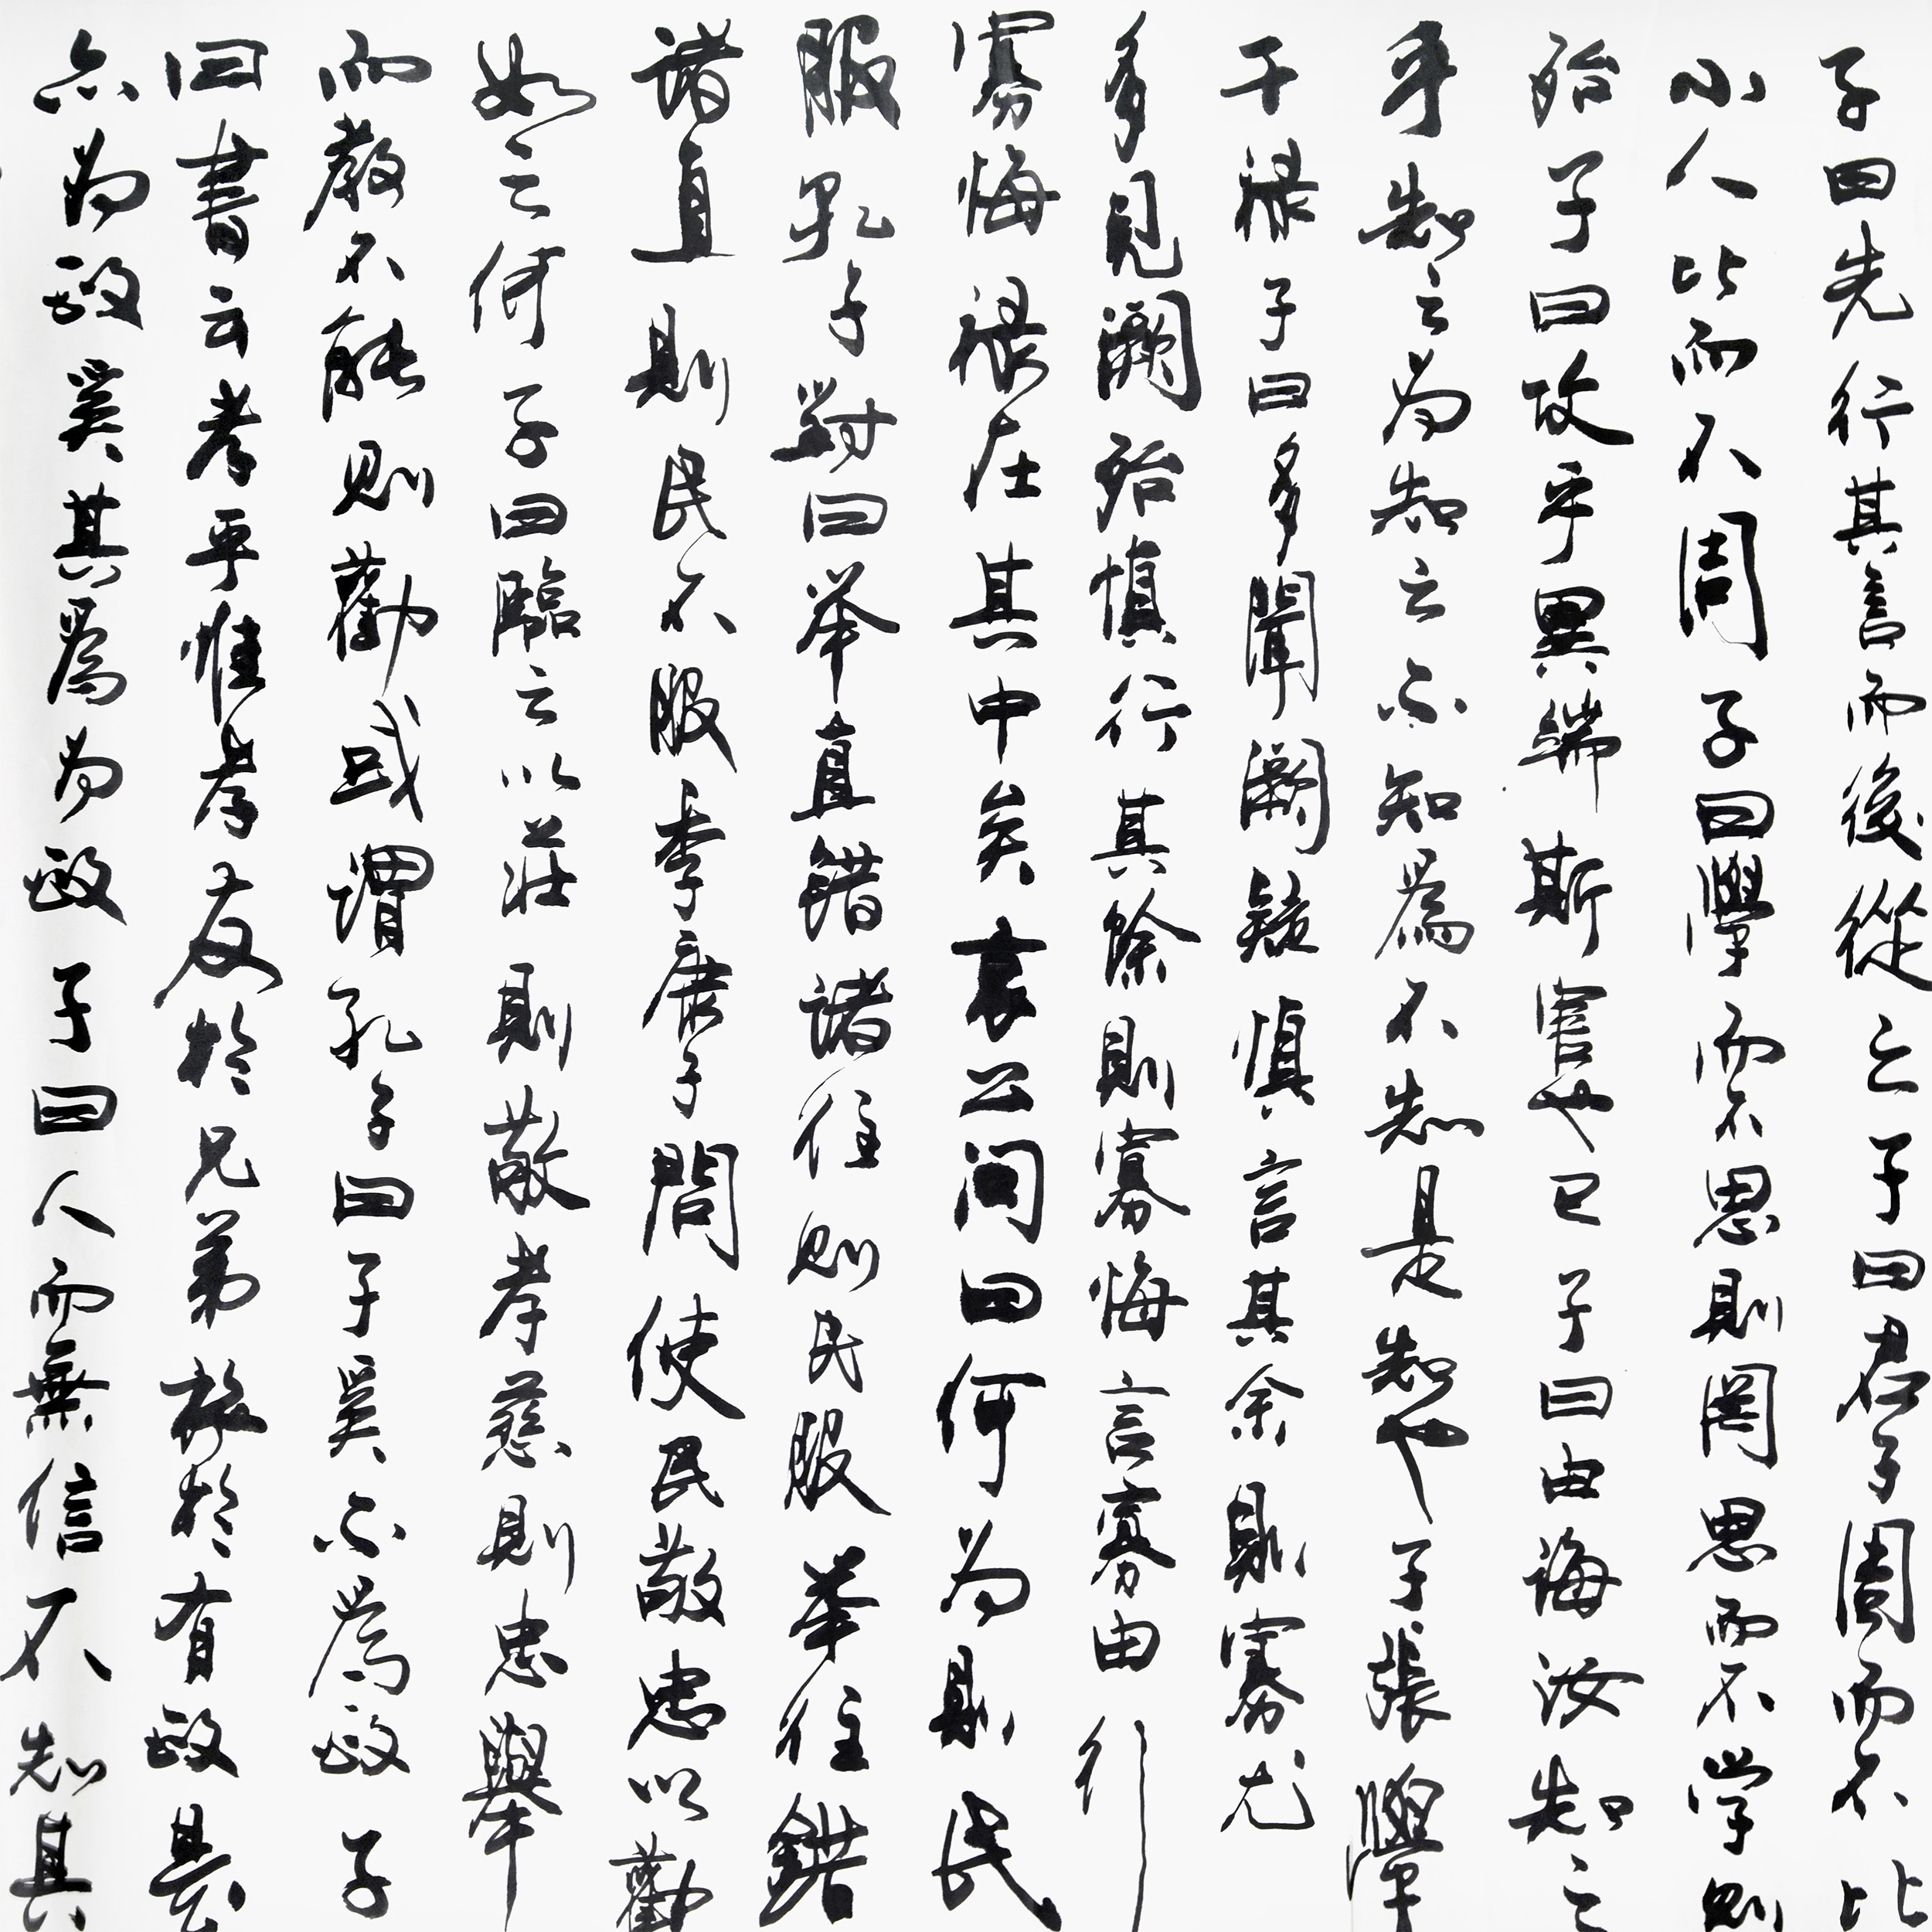 子曰先行其言而後從之子曰君子周而不比
小人比而不周子曰學而不思則罔思而不学則
殆子曰攻乎異端斯害也已子曰由誨汝知之
乎知之为知之亦知為不知是知也子張學
干禄子曰多聞阙疑慎言其余則寡尤
多見阙殆慎行其餘則寡悔言寡由行
寡悔禄在其中矣哀公问曰何为則民
服孔子對曰举直錯諸往则民服举往錯
諸直則民不服季康子問使民敬忠以勸
如之何子曰臨之以莊則敬孝慈則忠舉
而教不能则勸或謂孔子曰子奚亦為政子
曰書云孝乎惟孝友於兄弟施於有政是
亦为政奚其為为政子曰人而無信不知其